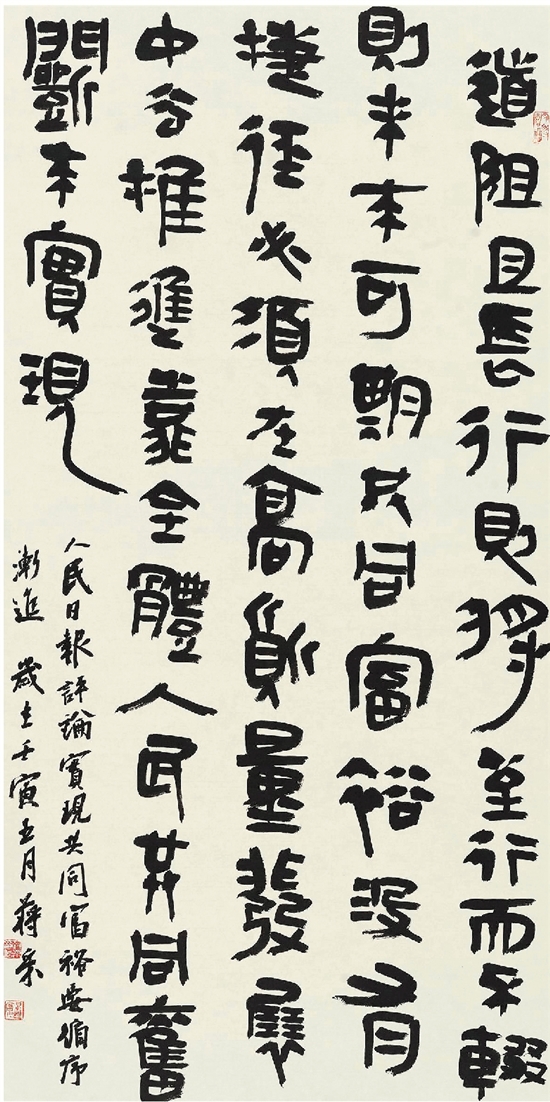 道阻且長行則將至行而不輟
則未來可期共同富裕沒有
捷徑必須在高質量發展
中推進靠全體人民共同奮
鬭來實現
人民日報評論實現共同富裕要循序
漸進 歲在壬寅五月蔣